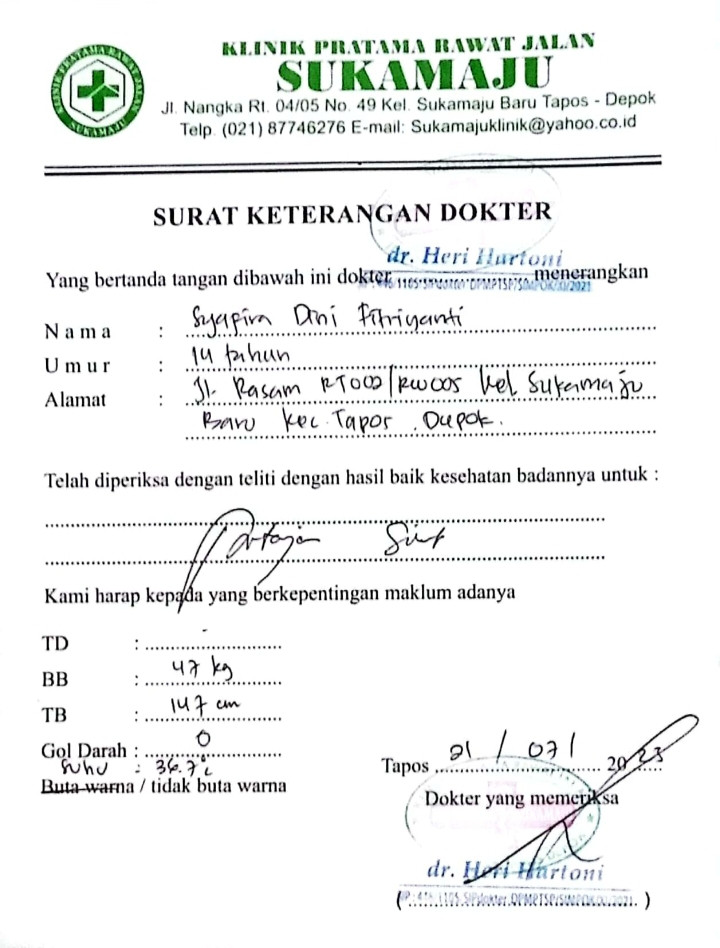 KLINIK PRATAMA RAWAT JALAN
SUKAMAJU
KLINIK PRATAMA RAWAT JALAN
SUKAMAJU
Jl. Nangka Rt. 04/05 No. 49 Kel. Sukamaju Baru Tapos - Depok
Telp. (021) 87746276 E-mail: Sukamajuklinik@yahoo.co.id
SURAT KETERANGAN DOKTER
dr. Heri Hartoni
Yang bertanda tangan dibawah ini dokter menerangkan
Nama : Syapira Dini Fitriyanti
Umur : 14 tahun
Alamat : Jl. Rasam RT002/RW005 Kel Sukamaju
Baru Kec. Tapos. Depok.
Telah diperiksa dengan teliti dengan hasil baik kesehatan badannya untuk :
Kami harap kepada yang berkepentingan maklum adanya
TD : -
BB : 47 kg
TB : 147 cm
Gol Darah : O
Suhu : 36.7°c
Buta warna / tidak buta warna
Tapos 21 / 07 / 2023
Dokter yang memeriksa
dr. Heri Hartoni